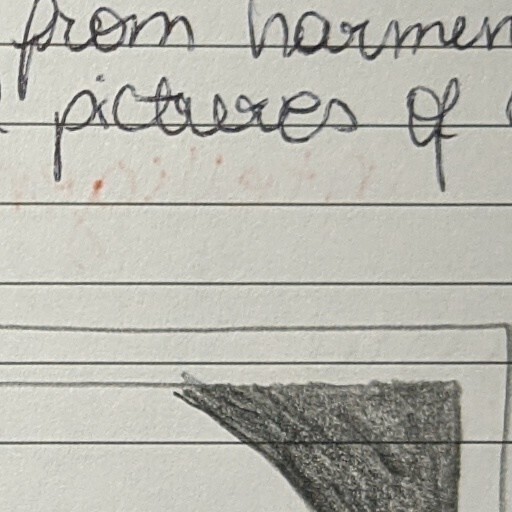 from harmen
pictures of